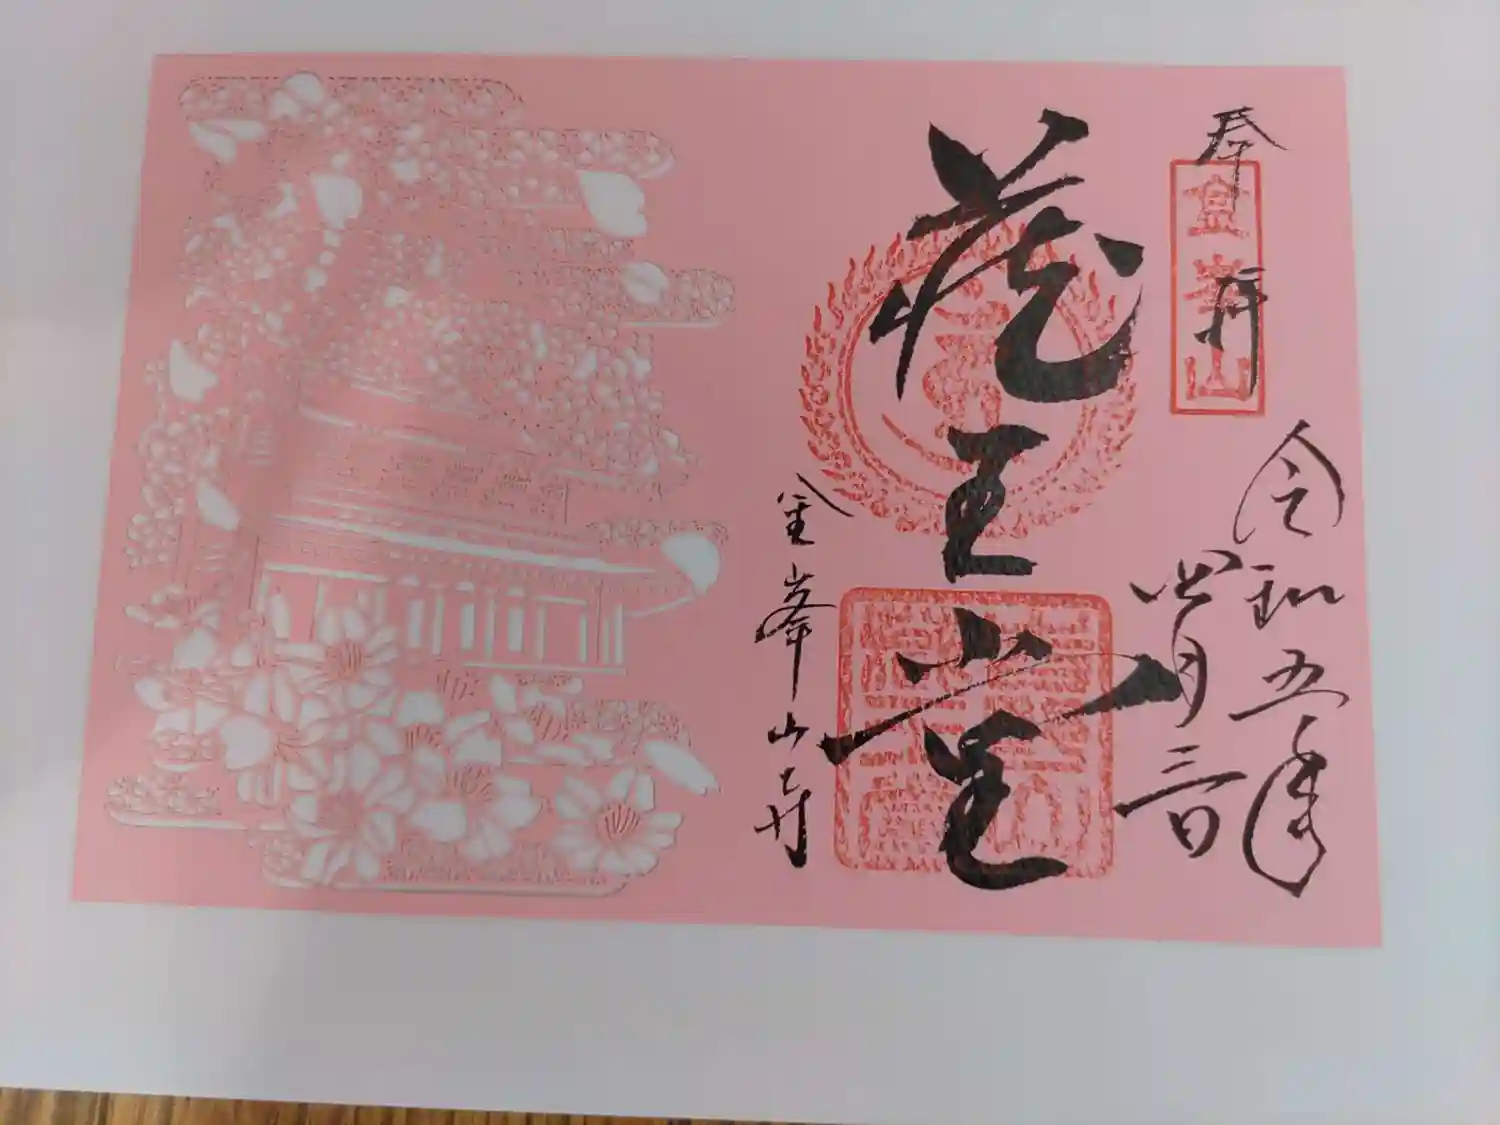 奉拝
金峯山
令和五年
四月三日
蔵王堂
金峯山寺